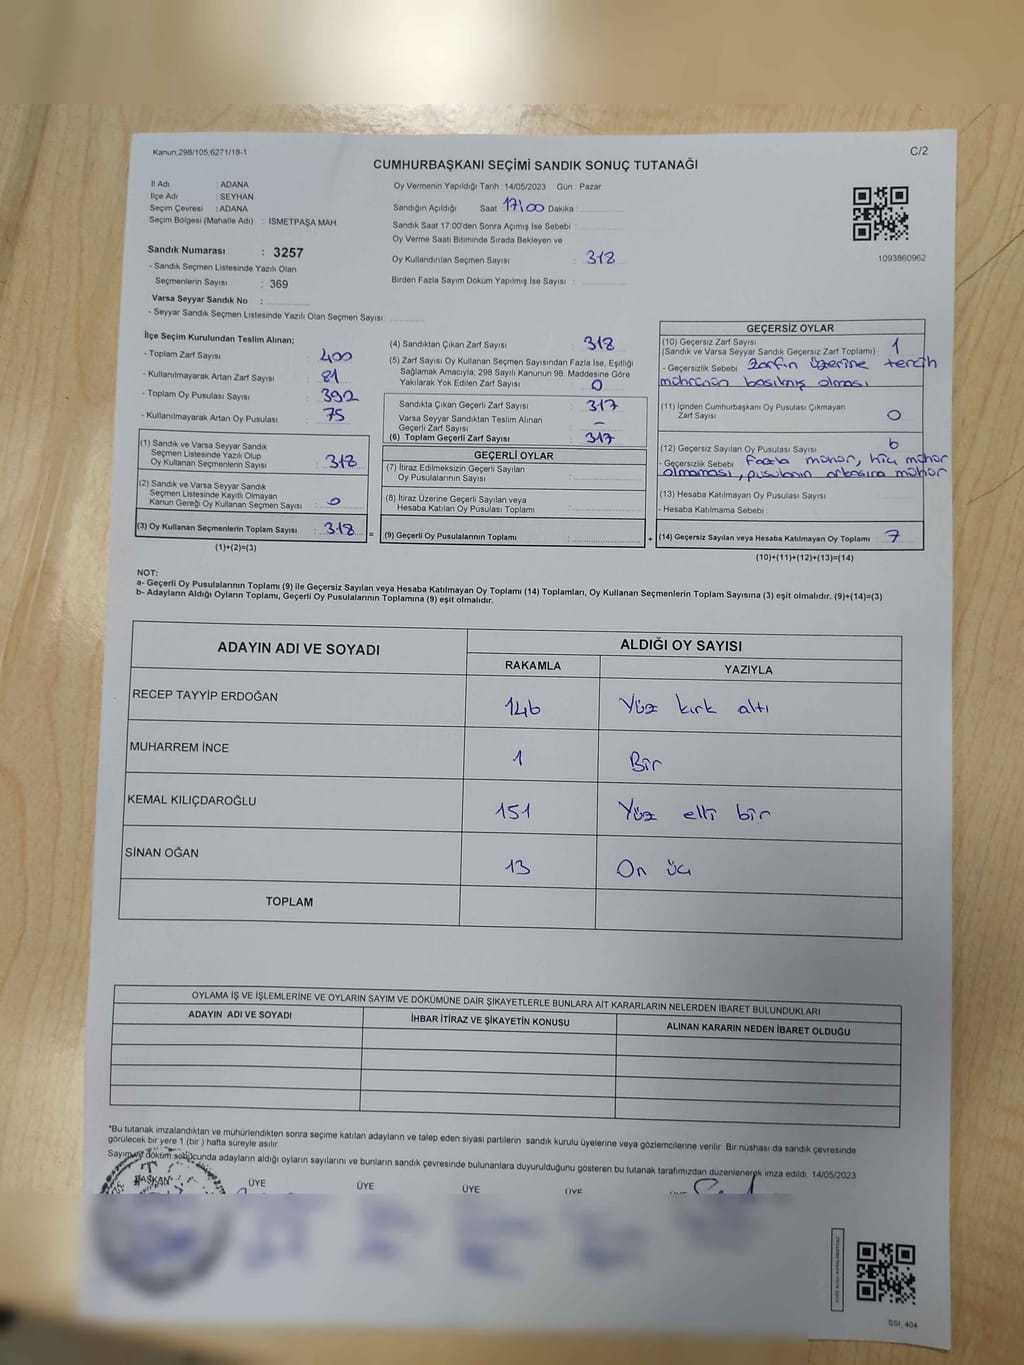 Kanun:298/105;6271/18-1
C/2
CUMHURBAŞKANI SEÇİMİ SANDIK SONUÇ TUTANAĞI
İl Adı : ADANA
İlçe Adı : SEYHAN
Seçim Çevresi : ADANA
Seçim Bölgesi (Mahalle Adı) : İSMETPAŞA MAH.
Sandık Numarası : 3257
- Sandık Seçmen Listesinde Yazılı Olan
Seçmenlerin Sayısı : 369
Varsa Seyyar Sandık No :
- Seyyar Sandık Seçmen Listesinde Yazılı Olan Seçmen Sayısı:
Oy Vermenin Yapıldığı Tarih :14/05/2023 Gün : Pazar
Sandığın Açıldığı Saat 17:00 Dakika :
Sandık Saat 17:00'den Sonra Açımış İse Sebebi :
Oy Verme Saati Bitiminde Sırada Bekleyen ve
Oy Kullandırılan Seçmen Sayısı : 318
Birden Fazla Sayım Döküm Yapılmış İse Sayısı :
1093860962
İlçe Seçim Kurulundan Teslim Alınan;
- Toplam Zarf Sayısı : 400
- Kullanılmayarak Artan Zarf Sayısı : 81
- Toplam Oy Pusulası Sayısı : 392
- Kullanılmayarak Artan Oy Pusulası : 75
(1) Sandık ve Varsa Seyyar Sandık
Seçmen Listesinde Yazılı Olup
Oy Kullanan Seçmenlerin Sayısı : 318
(2) Sandık ve Varsa Seyyar Sandık
Seçmen Listesinde Kayıtlı Olmayan
Kanun Gereği Oy Kullanan Seçmen Sayısı : 0
(3) Oy Kullanan Seçmenlerin Toplam Sayısı : 318 =
(1)+(2)=(3)
(4) Sandıktan Çıkan Zarf Sayısı : 318
(5) Zarf Sayısı Oy Kullanan Seçmen Sayısından Fazla İse, Eşitliği
Sağlamak Amacıyla; 298 Sayılı Kanunun 98. Maddesine Göre
Yakılarak Yok Edilen Zarf Sayısı : 0
Sandıkta Çıkan Geçerli Zarf Sayısı : 317
Varsa Seyyar Sandıktan Teslim Alınan
Geçerli Zarf Sayısı : -
(6) Toplam Geçerli Zarf Sayısı : 317
GEÇERLİ OYLAR
(7) İtiraz Edilmeksizin Geçerli Sayılan
Oy Pusulalarının Sayısı :
(8) İtiraz Üzerine Geçerli Sayılan veya
Hesaba Katılan Oy Pusulası Toplamı :
(9) Geçerli Oy Pusulalarının Toplamı : +
GEÇERSİZ OYLAR
(10) Geçersiz Zarf Sayısı
(Sandık ve Varsa Seyyar Sandık Geçersiz Zarf Toplamı) : 1
- Geçersizlik Sebebi : Zarfın üzerine tercih
mührünün basılmış olması
(11) İçinden Cumhurbaşkanı Oy Pusulası Çıkmayan
Zarf Sayısı : 0
(12) Geçersiz Sayılan Oy Pusulası Sayısı : 6
- Geçersizlik Sebebi : fazla mühür, hiç mühür
olmaması, pusulanın arkasına mühür
(13) Hesaba Katılmayan Oy Pusulası Sayısı
- Hesaba Katılmama Sebebi :
(14) Geçersiz Sayılan veya Hesaba Katılmayan Oy Toplamı : 7
(10)+(11)+(12)+(13)=(14)
NOT:
a- Geçerli Oy Pusulalarının Toplamı (9) ile Geçersiz Sayılan veya Hesaba Katılmayan Oy Toplamı (14) Toplamları, Oy Kullanan Seçmenlerin Toplam Sayısına (3) eşit olmalıdır. (9)+(14)=(3)
b- Adayların Aldığı Oyların Toplamı, Geçerli Oy Pusulalarının Toplamına (9) eşit olmalıdır.
ADAYIN ADI VE SOYADI
ALDIĞI OY SAYISI
RAKAMLA YAZIYLA
RECEP TAYYİP ERDOĞAN 146 Yüz kırk altı
MUHARREM İNCE 1 Bir
KEMAL KILIÇDAROĞLU 151 Yüz elli bir
SİNAN OĞAN 13 On üç
TOPLAM
OYLAMA İŞ VE İŞLEMLERİNE VE OYLARIN SAYIM VE DÖKÜMÜNE DAİR ŞİKAYETLERLE BUNLARA AİT KARARLARIN NELERDEN İBARET BULUNDUKLARI
ADAYIN ADI VE SOYADI İHBAR İTİRAZ VE ŞİKAYETİN KONUSU ALINAN KARARIN NEDEN İBARET OLDUĞU
*Bu tutanak imzalandıktan ve mühürlendikten sonra seçime katılan adayların ve talep eden siyasi partilerin sandık kurulu üyelerine veya gözlemcilerine verilir. Bir nüshası da sandık çevresinde
görülecek bir yere 1 (bir ) hafta süreyle asılır.
Sayım ve döküm sonucunda adayların aldığı oyların sayılarını ve bunların sandık çevresinde bulunanlara duyurulduğunu gösteren bu tutanak tarafımızdan düzenlenerek imza edildi. 14/05/2023
BAŞKAN ÜYE ÜYE ÜYE ÜYE
SSI_404